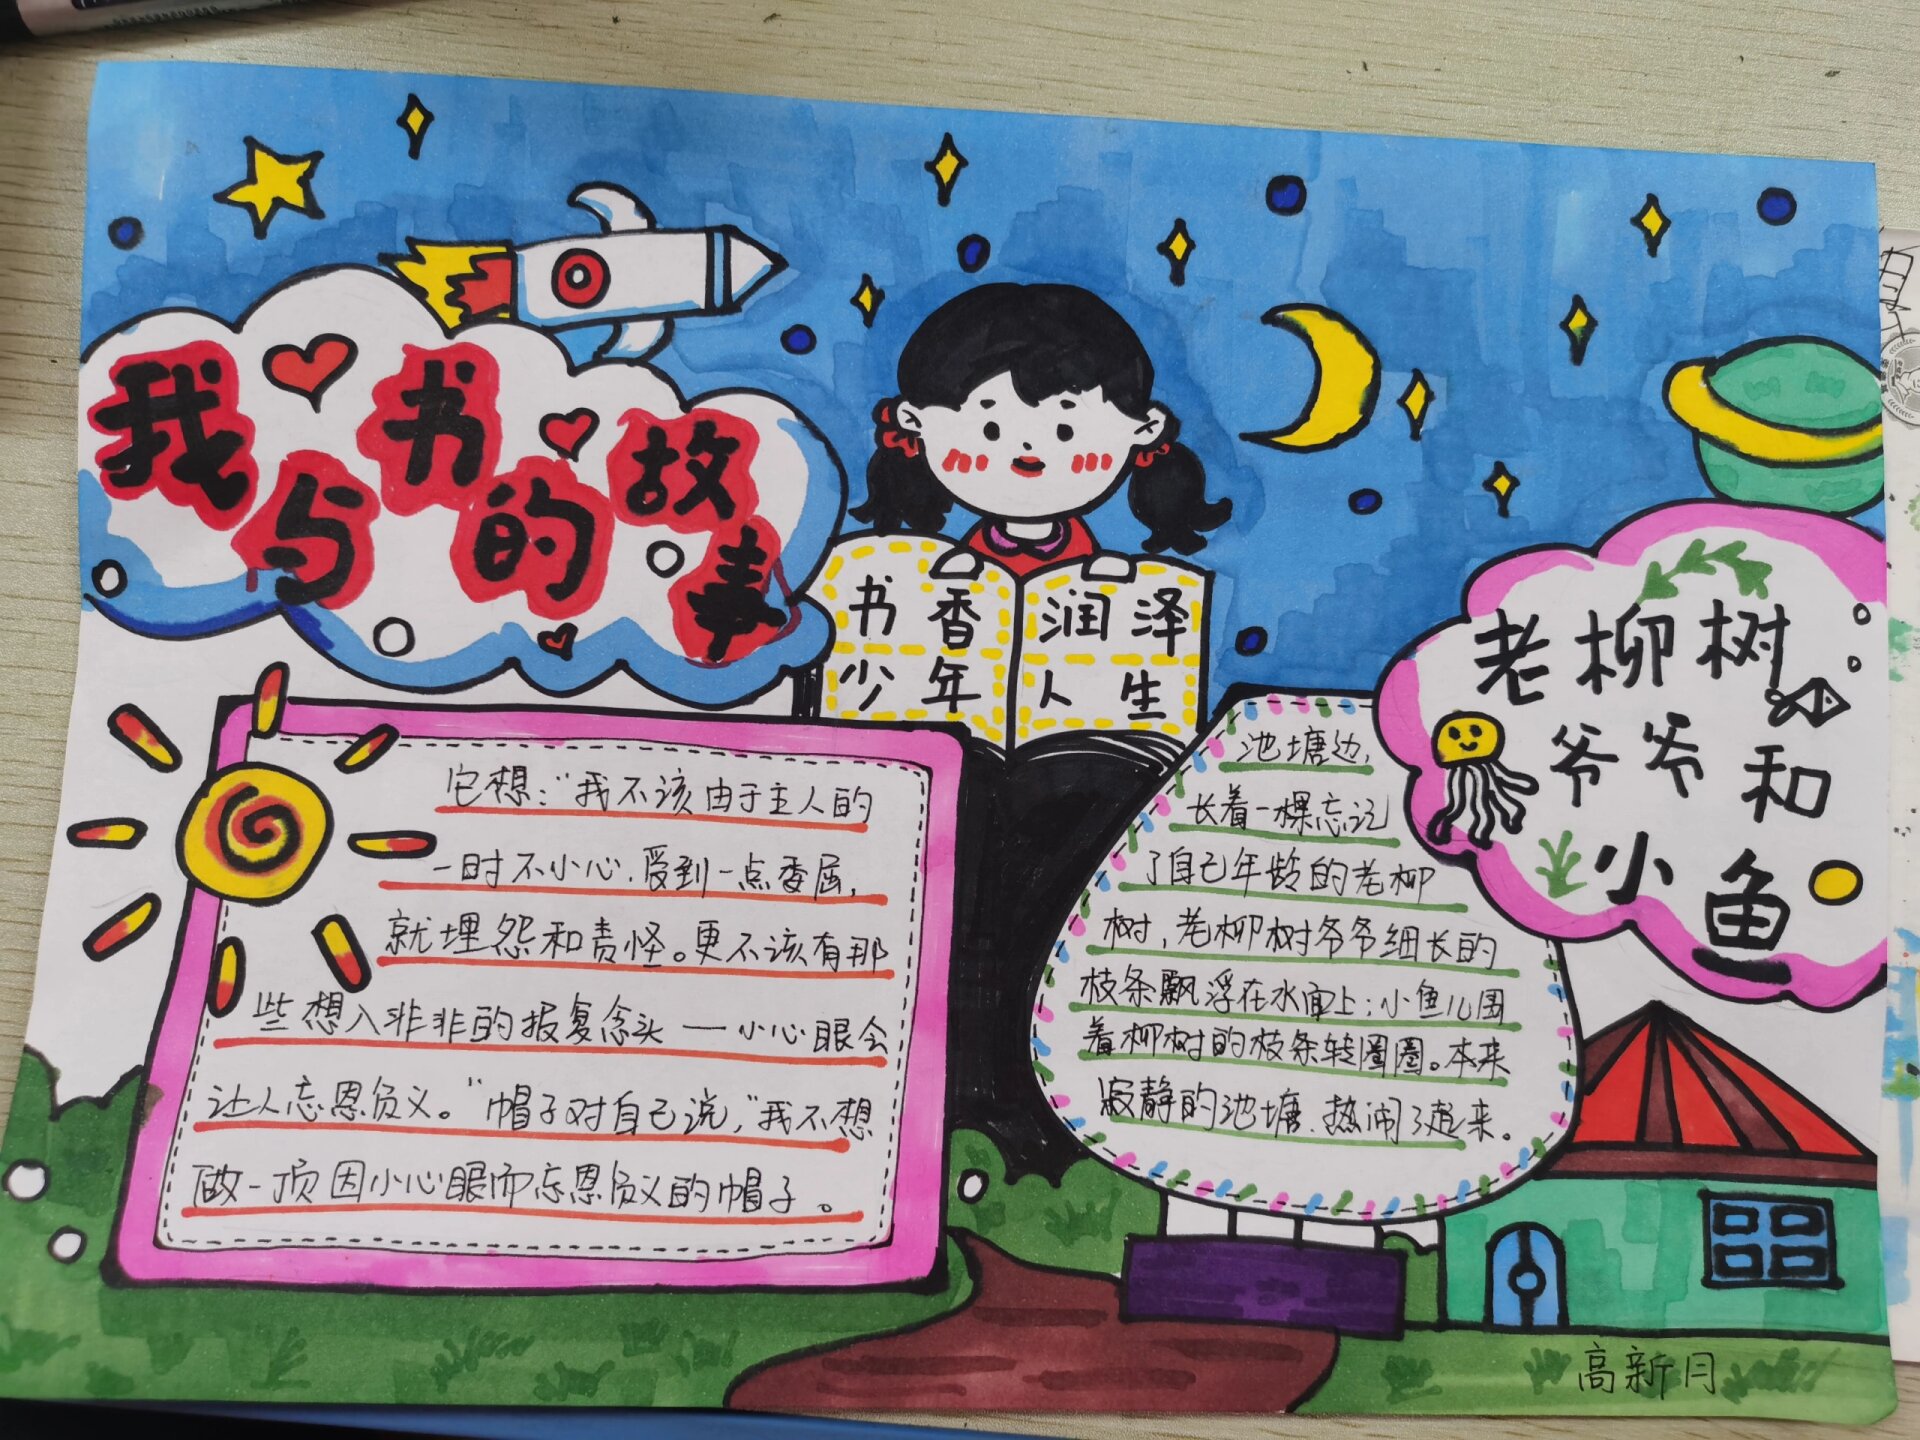 我与书的故事
书香润泽
少年人生
老柳树
爷爷和
小鱼
它想：“我不该由于主人的
一时不小心，受到一点委屈，
就埋怨和责怪。更不该有那
些想入非非的报复念头——小心眼会
让人忘恩负义。”帽子对自己说，“我不想
做一顶因小心眼而忘恩负义的帽子。
池塘边，
长着一棵忘记
了自己年龄的老柳
树，老柳树爷爷细长的
枝条飘浮在水面上；小鱼儿围
着柳树的枝条转圈圈。本来
寂静的池塘，热闹了起来。
高新月